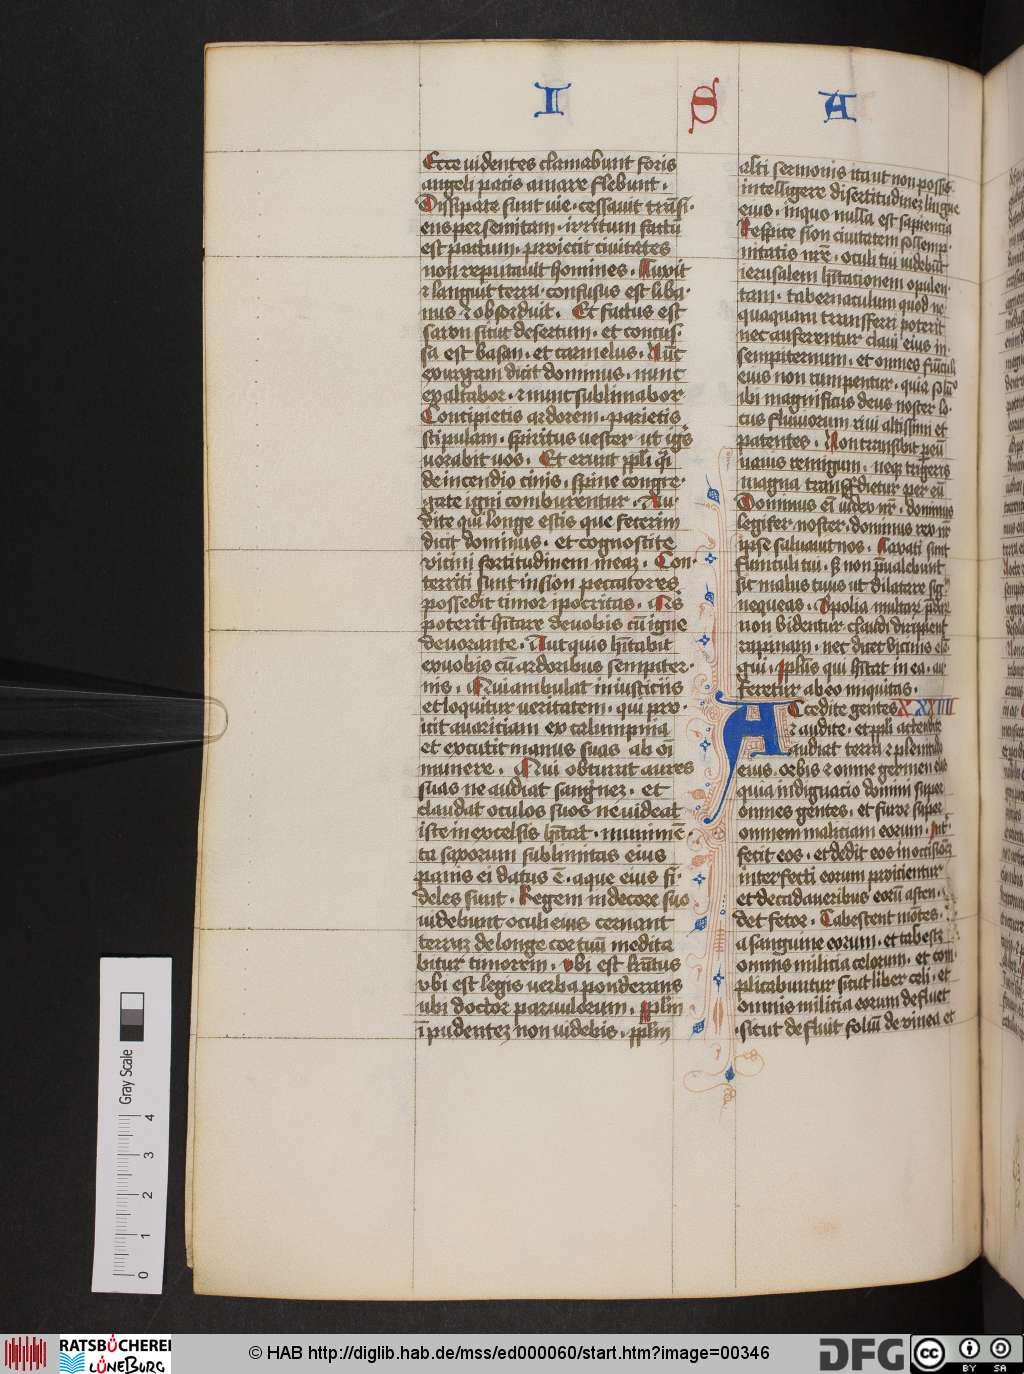 I S A
Ecce uidentes clamabunt foris
angeli pacis amare flebunt.
Dissipate sunt uie. cessauit trāsi.
ens per semitam. irritum factū
est pactum. proiecit ciuitates
non reputauit homines. Luxit
⁊ languit terra. confusus est liba.
nus ⁊ obsorduit. Et factus est
saron sicut desertum. et concus.
sa est basan. et carmelus. Nūc
exurgam dicit dominus. nunc
exaltabor. ⁊ nunc sublimabor
Concipietis ardorem. parietis
stipulam. spiritus uester ut ignis
uorabit uos. Et erunt ppli q̄i
de incendio cinis. spine congre.
gate igni comburentur. Au.
dite qui longe estis que fecerim
dicit dominus. et cognoscite
vicini fortitudinem meaꝫ. Con.
territi sunt in sion peccatores
possedit timor ipocritas. Qis
poterit hitare de uobis cū igne
deuorante. Aut quis hītabit
ex uobis cū ardoribus sempiter.
nis. Qui ambulat in iusticiis
et loquitur ueritatem. qui pro.
icit auaritiam ex calumpnia
et excutit manus suas ab oī
munere. Qui obturat aures
suas ne audiat sangineꝫ. et
claudat oculos suos ne uideat
iste in excelsis hītat. munimē.
ta saxorum sublimitas eius
panis ei datus ē. aque eius fi.
deles sunt. Regem in decore suo
uidebunt oculi eius cernent
terram de longe cor tuū medita
bitur timorem. vbi est lrātus
vbi est legis uerba ponderans
ubi doctor paruulorum. pplm
īpudenteꝫ non uidebis. pplm
alti sermonis ita ut non possis
intelligere disertitudineꝫ lingue
eius. in quo nulla est sapiencia
Respice sion ciuitatem sollemp.
nitatis nr̄e. oculi tui uidebūt
ierusalem hītacionem opulen
tam. tabernaculum quod ne
quaquam transferri poterit
nec auferentur claui eius in.
sempiternum. et omnes funiculi
eius non rumpentur. quia solū
ibi magnificus deus noster lo.
cus fluuiorum riui altissimi et
patentes. Non transibit per eū
nauis remigum. neqꝫ trigeris
magna transgredietur per eū
Dominus ei iudex nr̄. dominus
legifer noster. dominus rex nr̄
ipse saluauit nos. Laxati sunt
funiculi tui. ꝫ non preualebunt
sic malus tuus ut dilatare sig.
nequeas.
non videntur claudi diripient
rapinam. nec dicet vicinus elā
gui. pplus qui hītat in ea. au
feretur ab eo iniquitas.
Accedite gentes XXXIIII
⁊ audite. et ppli attendite
audiat terra ⁊ plenitudo
eius. orbis ⁊ omne germen eius
quia indignacio domini super
omnes gentes. et furor super
omnem maliciam eorum. Int.
fecit eos. et dedit eos in occisionē
interfecti eorum proicientur
et de cadaueribus eorū ascen.
det fetor. Tabescent mōtes.
a sanguine eorum. et tabescꝫ
omnis milicia celorum. et com.
plicabuntur sicut liber celi. et
omnis militia eorum defluet
sicut defluit foliū de vinea et
Gray Scale
0 1 2 3 4
RATSBÜCHEREI
LÜNEBURG
© HAB http://diglib.hab.de/mss/ed000060/start.htm?image=00346
DFG
cc BY SA